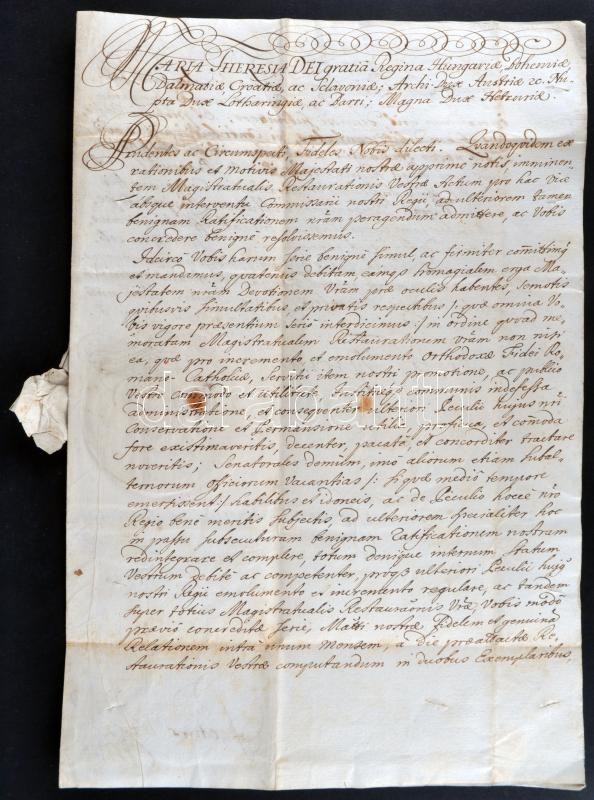 MARIA THERESIA DEI gratia Regina Hungariæ, Bohemiæ,
Dalmatiæ Croatiæ, ac Sclavoniæ; Archi-Dux Austriæ &c. Nu-
pta Dux Lotharingiæ, ac Barri; Magna Dux Hetruriæ.
Prudentes ac Circumspecti, Fideles Nobis dilecti. Quandoquidem ex
rationibus et motivis Majestati nostræ apprime notis, imminen-
tem Magistratualis Restaurationis Vestræ Actum pro hac vice
absque interventu Commissarii nostri Regii, ad ulteriorem tamen
benignam Ratificationem nram peragendum admittere, ac Vobis
concredere benigne resolvissemus.
Idcirco Vobis harum serie benigne simul, ac firmiter comittimg
et mandamus, quatenus debitam, eamqg homagialem erga Ma-
jestatem nram Devotionem Vram præ oculis habentes, Semotis
quibusvis simultatibus, et privatis respectibus /: quæ omnia Vo-
bis vigore præsentium serio interdicimus :/ in ordine quoad me-
moratam Magistratualem Restaurationem Vram non nisi
ea, quæ pro incremento et emolumento Orthodoxæ Fidei Ro-
mano Catholicæ, Servitii item nostri promotione, ac publico
Vestri commodo et utilitate, Justitiæqg communis indefessa
administratione, et consequenter ulteriori Peculii hujus nri
Conservatione et Permansione utilia, proficua, et comoda
fore existimaveritis, decenter, pacate, et concorditer tractare
noveritis; Senatorales demum, imo aliorum etiam Subal-
ternorum officiorum Vacantias /: si quæ medio tempore
emersissent :/ habilibus et idoneis, ac de Peculio hocce nro
Regio bene meritis Subjectis, ad ulteriorem specialiter hoc
in passu subsecuturam benignam Ratificationem nostram
redintegrare et complere, totum denique internum statum
Vestrum debite ac competenter, proqg ulteriori Peculii hujg
nostri Regii emolumento et incremento regulare, ac tandem
super totius Magistratualis Restauraonis Vræ, Vobis modo
prævio concreditæ serie, Matti nostræ fidelem et genuinam
Relationem intra unum Mensem, a die præattactæ Re-
staurationis Vestræ computandum in duobus Exemplaribus,
darabanth